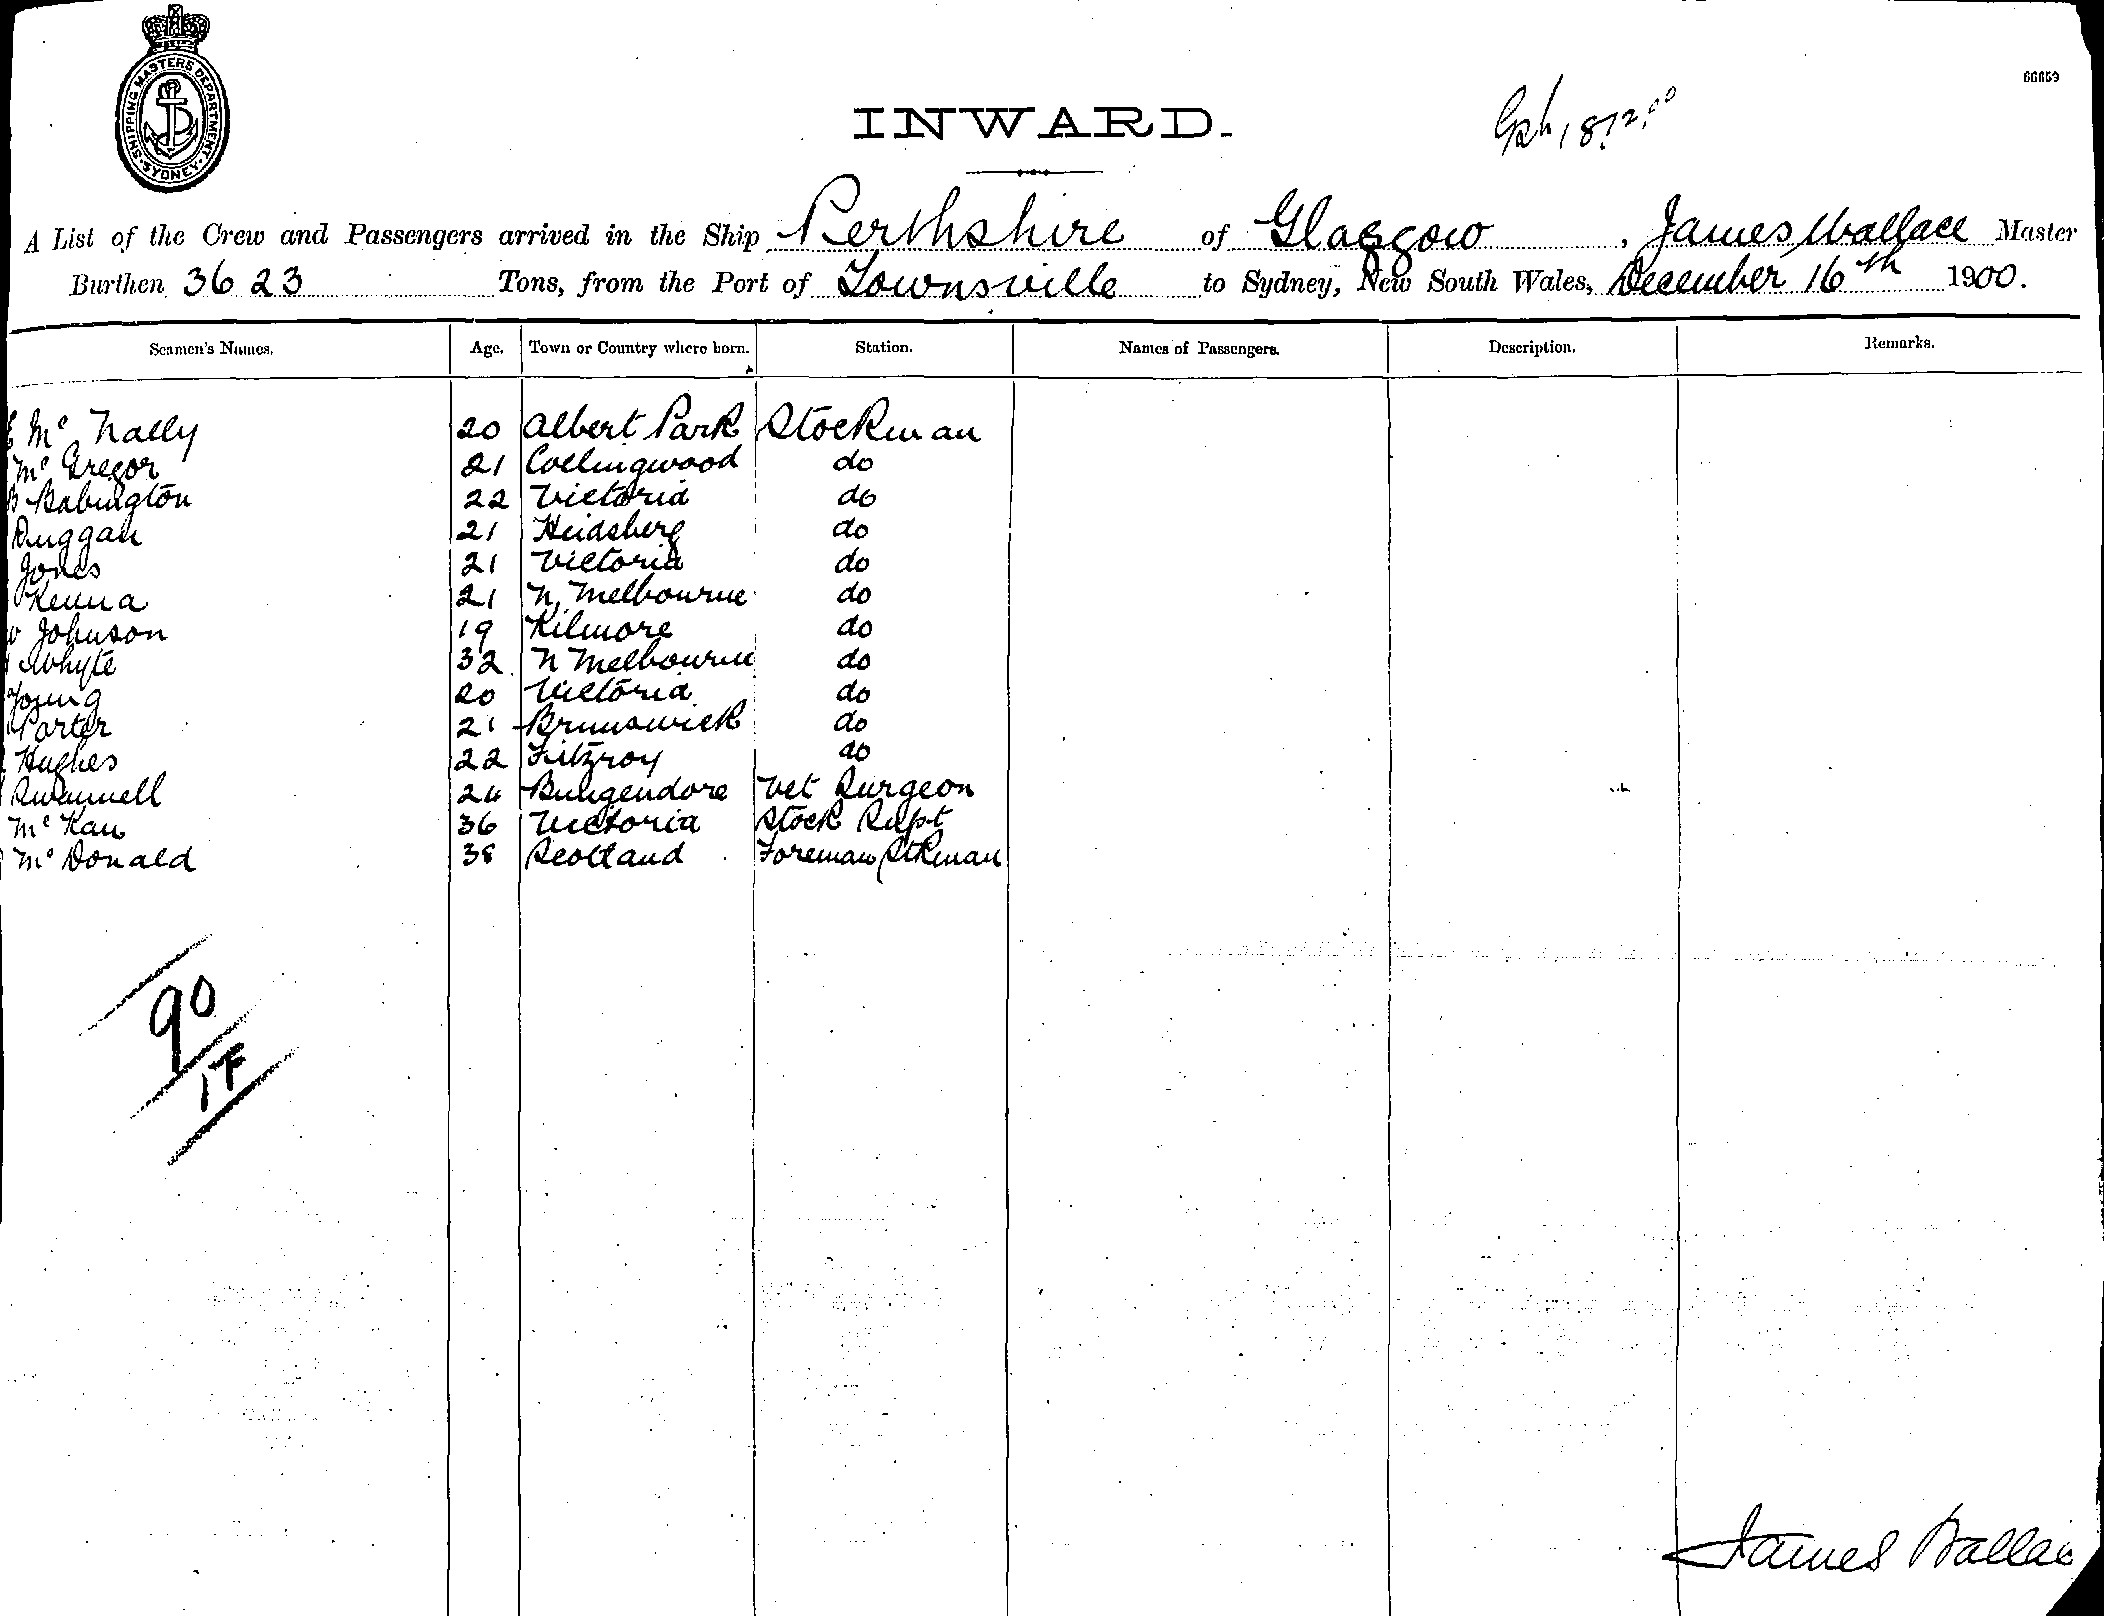 SHIPPING MASTERS DEPARTMENT. SYDNEY.
66659
INWARD.
A List of the Crew and Passengers arrived in the Ship Perthshire of Glasgow, James Wallace Master
Burthen 3623 Tons, from the Port of Townsville to Sydney, New South Wales, December 16th 1900.
Seamen's Names. Age. Town or Country where born. Station. Names of Passengers. Description. Remarks.
E Mc Nally 20 Albert Park Stockman
McGregor 21 Collingwood do
B Babington 22 Victoria do
Duggan 21 Heidsberg do
Jones 21 Victoria do
Kenna 21 N. Melbourne do
Johnson 19 Kilmore do
Whyte 32 N Melbourne do
Young 20 Victoria do
Porter 21 Brunswick do
Hughes 22 Fitzroy do
Swannell 24 Bungendore Vet Surgeon
McKau 36 Victoria Stock Supt
McDonald 38 Scotland Foreman Stkman
90
17
James Wallac